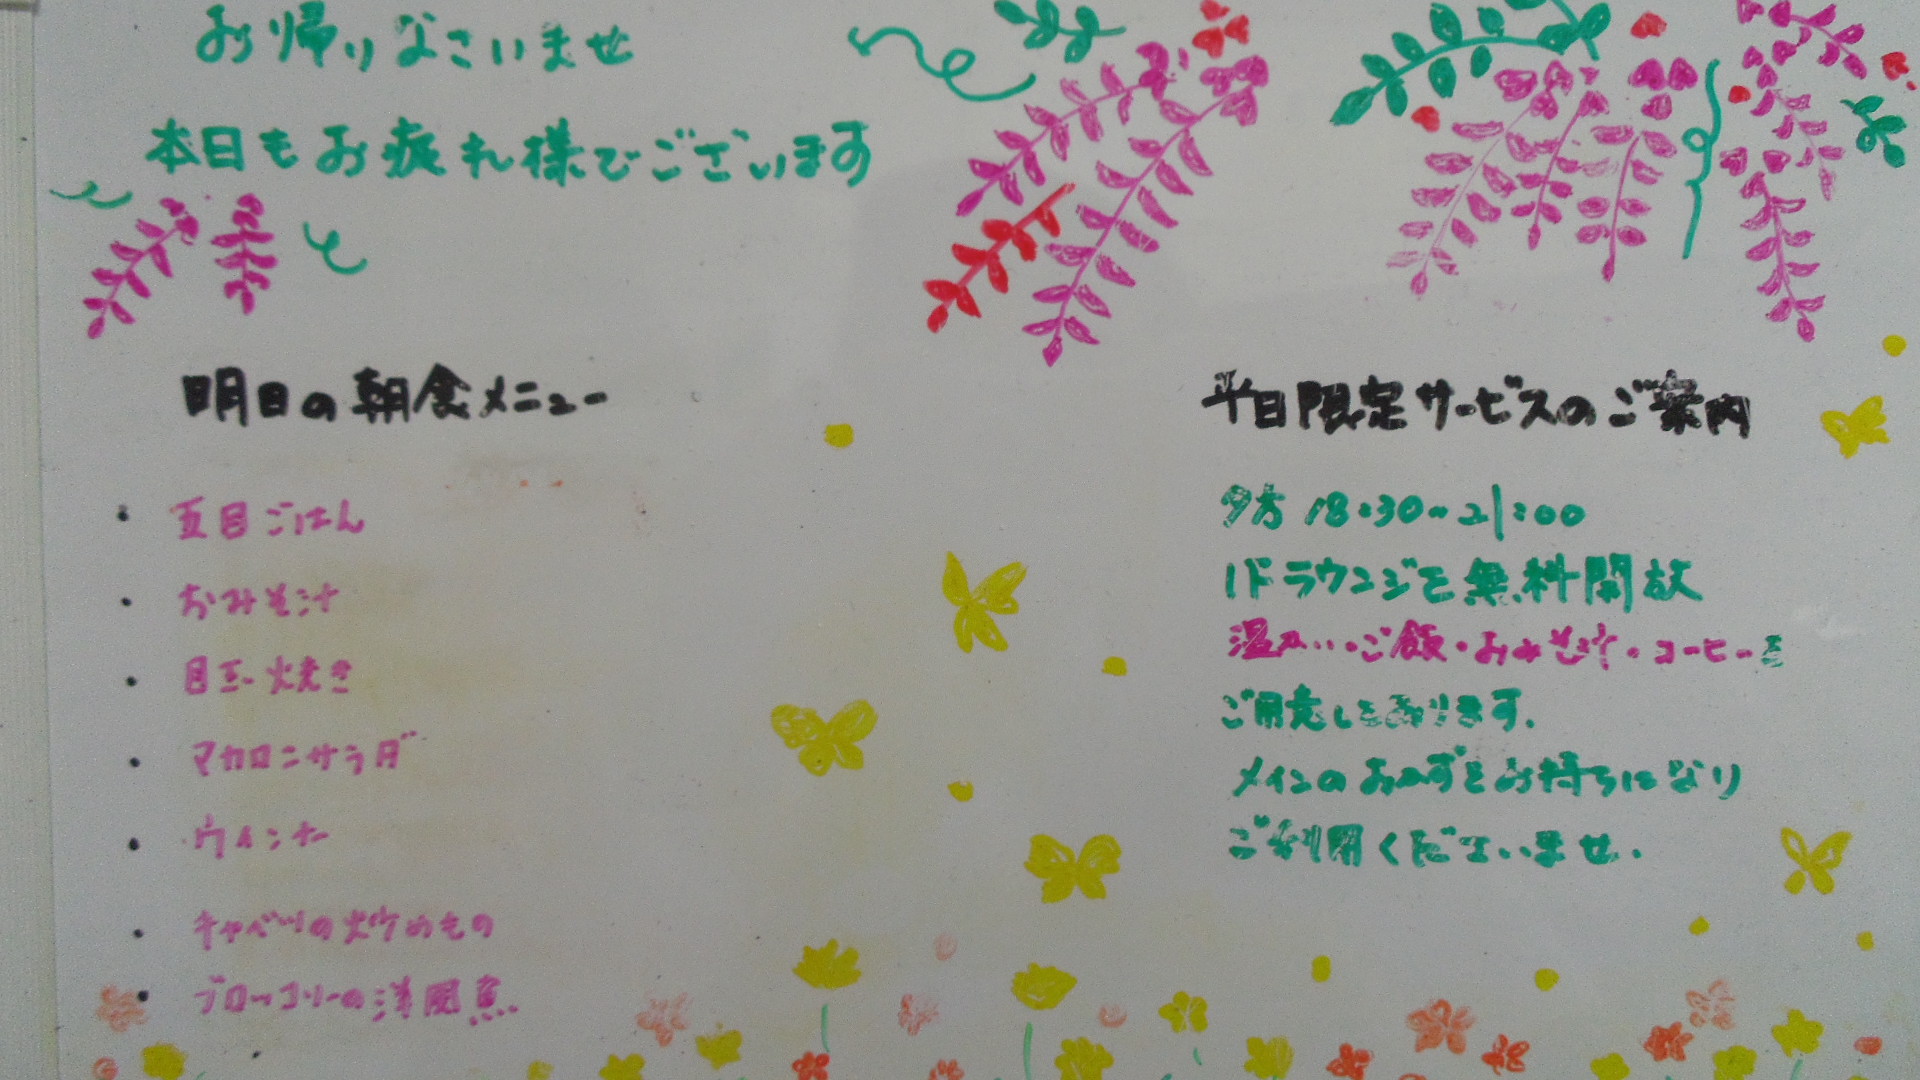 お帰りなさいませ
本日もお疲れ様でございます
明日の朝食メニュー
・五目ごはん
・おみそ汁
・目玉焼き
・マカロニサラダ
・ウィンナー
・キャベツの炒めもの
・ブロッコリーの洋風煮
平日限定サービスのご案内
夕方 18:30~21:00
1Fラウンジを無料開放
温かい・ご飯・おみそ汁・コーヒーを
ご用意しております。
メインのおかずをお持ちになり
ご利用くださいませ。